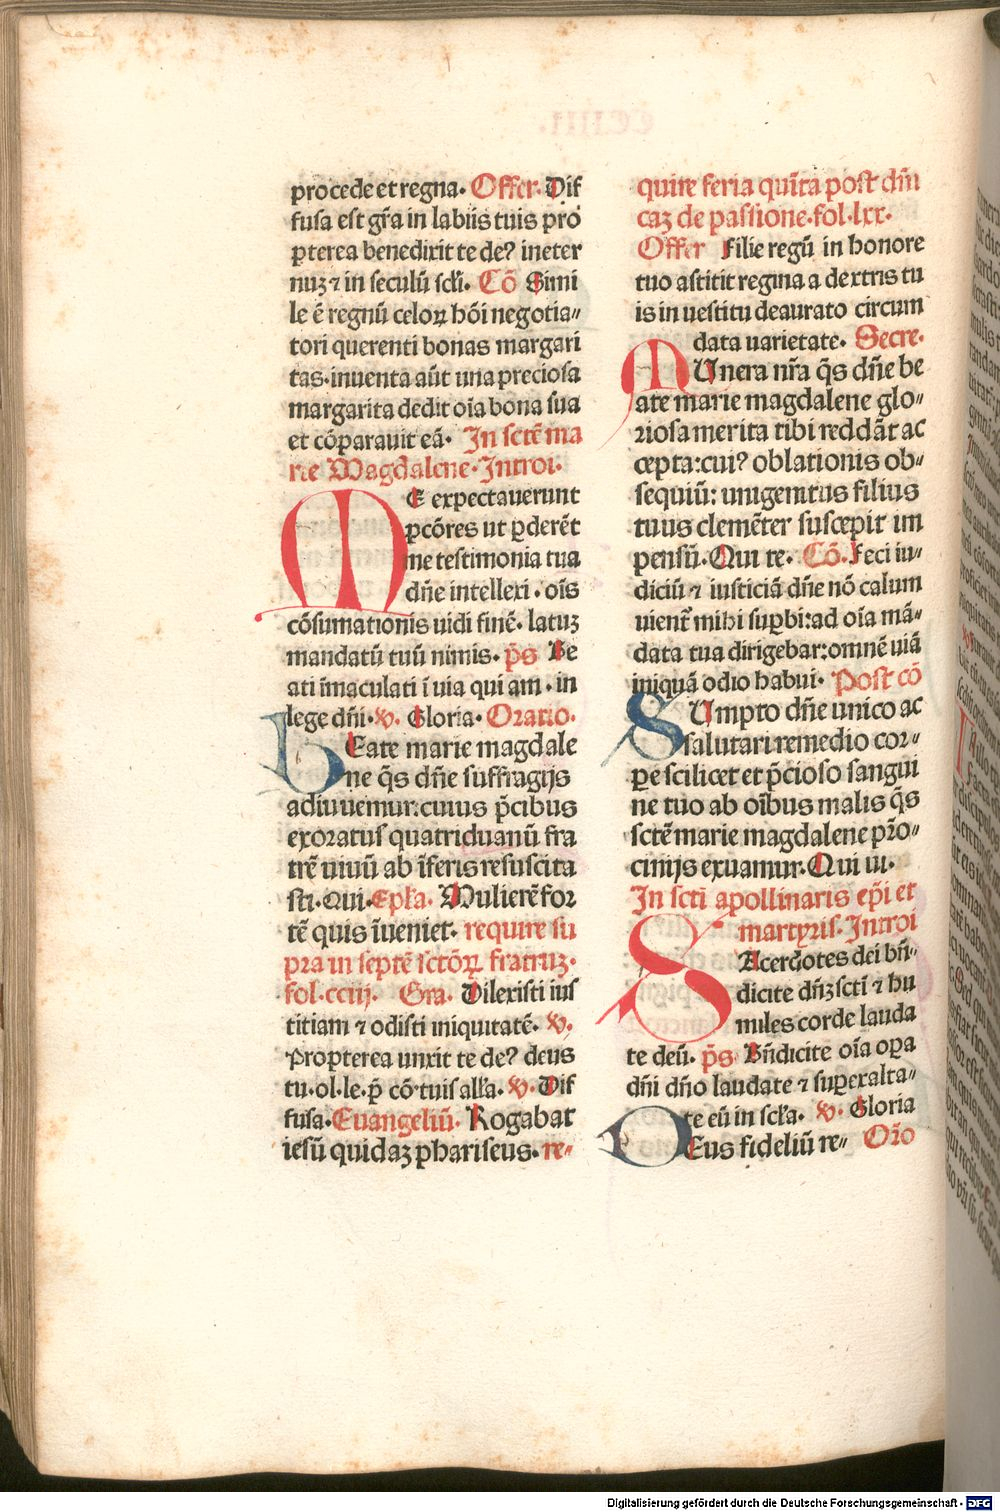 procede et regna. Offer. Dif
fusa est gr̄a in labiis tuis pro
pterea benedixit te de? in eter
nuz ⁊ in seculū scłi. Cō Simi
le ē regnū celoꝝ hōi negotia⸗
tori querenti bonas margari
tas. inuenta aūt una preciosa
margarita dedit oīa bona sua
et cōparauit eā. In sctē ma
rie Magdalene. Introi.
ME expectauerunt
pcōres ut ꝑderēt
me testimonia tua
dn̄e intellexi. oīs
cōsumationis uidi finē. latuz
mandatū tuū nimis. p̄s Be
ati īmaculati ī uia qui am. in
lege dn̄i. v. Gloria. Oratio.
BEate marie magdale
ne q̄s dn̄e suffragijs
adiuuemur: cuius p̄cibus
exoratus quatriduanū fra
trē uiuū ab īferis resuscita
sti. Qui. Epła. Mulierē for
tē quis īueniet. require su
pra in septē sctōꝝ fratruz.
fol. cciij. Gra. Dilexisti ius
titiam ⁊ odisti iniquitatē. v.
Propterea unxit te de? deus
tu. ol. le. p̄ cō. tuis alła. v. Dif
fusa. Euangeliū. Rogabat
iesū quidaz phariseus. re⸗
quire feria quīta post dn̄i
caz de passione. fol. lxx.
Offer Filie regū in honore
tuo astitit regina a dextris tu
is in uestitu deaurato circum
data uarietate. Secre.
MUnera nr̄a q̄s dn̄e be
ate marie magdalene glo⸗
riosa merita tibi reddāt ac
cepta: cui? oblationis ob⸗
sequiū: unigenitus filius
tuus clemēter suscepit im
pensū. Qui te. Cō. Feci iu⸗
diciū ⁊ iusticiā dn̄e nō calum
nient᷑ mihi suꝑbi: ad oīa mā⸗
data tua dirigebar: omnē uiā
iniquā odio habui. Post cō
SUmpto dn̄e unico ac
salutari remedio cor⸗
ꝑe scilicet et p̄cioso sangui
ne tuo ab oībus malis q̄s
sctē marie magdalene pr̄o⸗
cinijs exuamur. Qui ui.
In scti apollinaris ep̄i et
martyris. Introi
SAcerdotes dei bn̄⸗
dicite dn̄z scti ⁊ hu
miles corde lauda
te deū. p̄s Bn̄dicite oīa oꝑa
dn̄i dn̄o laudate ⁊ suꝑexalta⸗
te eū in scła. v. Gloria
DEus fideliū re⸗ Orō
Digitalisierung gefördert durch die Deutsche Forschungsgemeinschaft - DFG